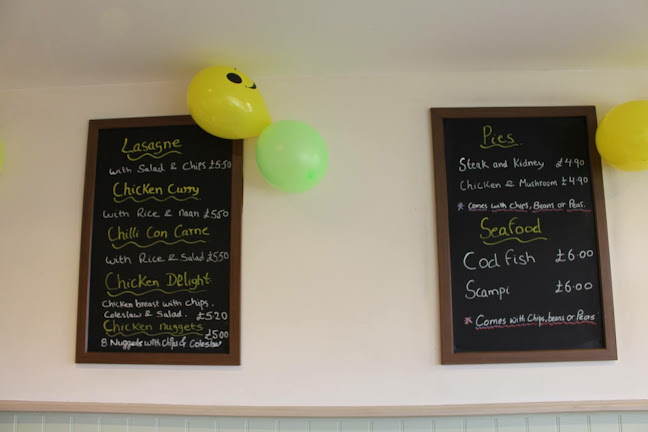 Lasagne
with Salad & Chips £5.50
Chicken Curry
with Rice & Naan £5.50
Chilli Con Carne
with Rice & Salad £5.50
Chicken Delight
Chicken breast with chips.
Coleslaw & Salad. £5.20
Chicken nuggets
£5.00
8 Nuggets with Chips & Coleslaw
Pies
Steak and Kidney £4.90
Chicken & Mushroom £4.90
* Comes with Chips, Beans or Peas.
Seafood
Cod fish £6.00
Scampi £6.00
* Comes with Chips, beans or Peas